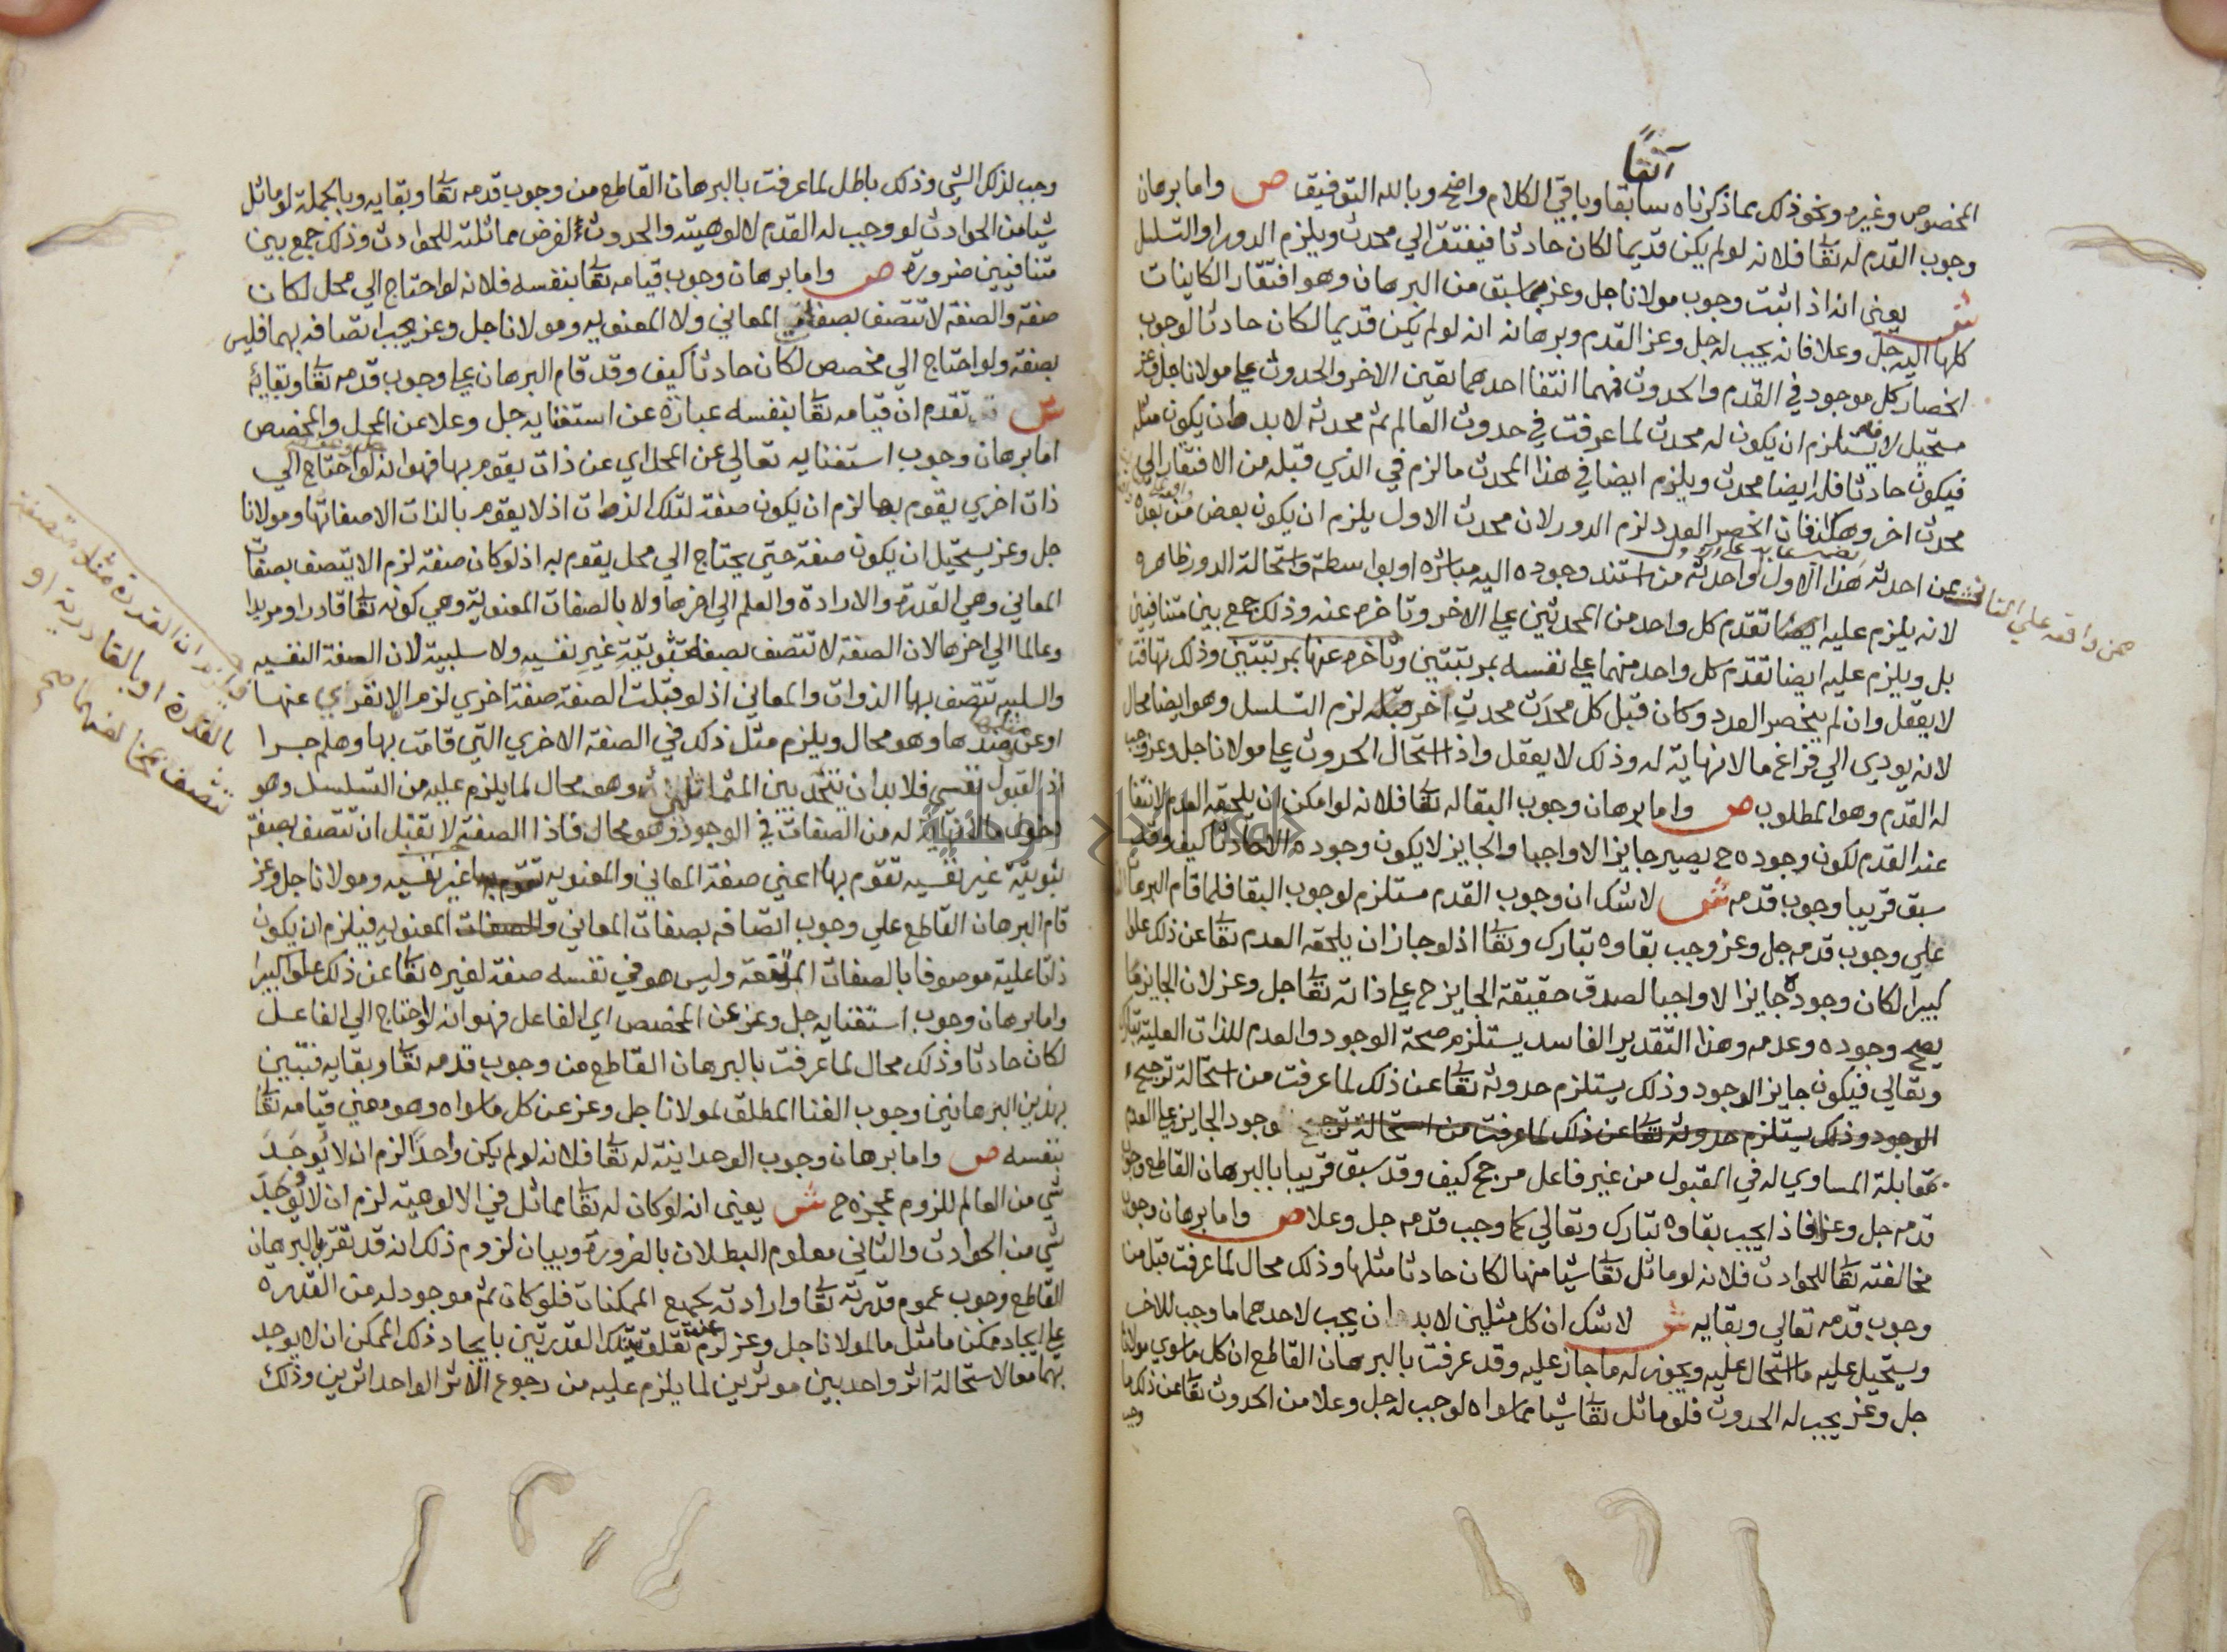 آنفا
المخصوص وغيره ونحو ذلك مما ذكرناه سابقا وباقي الكلام واضح وبالله التوفيق ص واما برهان
وجوب القدم له تعا فلانه لو لم يكن قديما لكان حادثا فيفتقر الي محدث ويلزم الدور او التسلسل
ش يعني انه اذا ثبت وجوب مولانا جل وعز بما سبق من البرهان وهو افتقار الكاينات
كلها اليه جل وعلا فانه يجب له جل وعز القدم وبرهانه انه لو لم يكن قديما لكان حادثا لوجوب
انحصار كل موجود في القدم والحدوث فمهما انتفا احدهما تعين الاخر والحدوث علي مولانا جل وعز
مستحيل لانه يستلزم ان يكون له محدث لما عرفت في حدوث العالم ثم محدثه لا بد وان يكون مثله
فيكون حادثا فله ايضا محدث ويلزم ايضا في هذا المحدث ما لزم في الذي قبله من الافتقار الي
محدث اخر وهكذا فان انحصر العدد لزم الدور لان محدث الاول يلزم ان يكون بعض من بعده
عن احدثه هذا الاول او احدثه من استند وجوده اليه مباشرة او بواسطة واستحالة الدور ظاهره
لانه يلزم عليه ايضا تقدم كل واحد من المحدثين علي الاخر وتاخره عنه وذلك جمع بين متنافيين
بل ويلزم عليه ايضا تقدم كل واحد منهما علي نفسه بمرتبتين وتاخره عنها بمرتبتين وذلك تهافت
لا يعقل وان لم ينحصر العدد وكان قبل كل محدث محدث اخر قبله لزم التسلسل وهو ايضا محال
لانه يودي الي فراغ ما لا نهاية له وذلك لا يعقل واذ استحال الحدوث علي مولانا جل وعز وجب
له القدم وهو المطلوب ص واما برهان وجوب البقا له تعا فلانه لو امكن ان يلحقه العدم لانتفا
عنه القدم لكون وجوده ح يصير جايزا لا واجبا والجايز لا يكون وجوده الا حادثا كيف وقد
سبق قريبا وجوب قدمه ش لا شك ان وجوب القدم مستلزم لوجوب البقا فلما قام البرهان
علي وجوب قدمه جل وعز وجب بقاوه تبارك وتعا اذ لو جاز ان يلحقه العدم تعا عن ذلك علوا
كبيرا لكان وجوده جايزا لا واجبا لصدق حقيقة الجايز ح علي ذاته تعا جل وعز لان الجايز ما
يصح وجوده وعدمه وهذا التقدير الفاسد يستلزم صحة الوجود والعدم للذات العلية تبارك
وتعالي فيكون جايز الوجود وذلك يستلزم حدوثه تعا عن ذلك لما عرفت من استحالة ترجيح
الوجود وذلك يستلزم حدوثه تعا عن ذلك لما عرفت من استحالة ترجيح وجود الجايز علي العدم
مقابلة المساوي له في القبول من غير فاعل مرجح كيف وقد سبق قريبا بالبرهان القاطع وجوب
قدمه جل وعز فاذا يجب بقاوه تبارك وتعالي كما وجب قدمه جل وعلا ص واما برهان وجوب
مخالفته تعا للحوادث فلانه لو ماثل تعا شيا منها لكان حادثا مثلها وذلك محال لما عرفت قبل من
وجوب قدمه تعالي وبقايه ش لا شك ان كل مثلين لا بد ان يجب لاحدهما ما وجب للاخر
ويستحيل عليه ما استحال عليه ويجوز له ما جاز عليه وقد عرفت بالبرهان القاطع ان كل ما سوي مولانا
جل وعز يجب له الحدوث فلو ماثل تعا شيا مما سواه لوجب له جل وعلا من الحدوث تعا عن ذلك ما
وجب
وجب لذلك الشي وذلك باطل لما عرفت بالبرهان القاطع من وجوب قدمه تعا وبقايه وبالجملة لو ماثل
شيا من الحوادث لو وجب له القدم لالوهيته والحدوث لفرض مماثلته للحوادث وذلك جمع بين
متنافيين ضرورة ص واما برهان وجوب قيامه تعا بنفسه فلانه لو احتاج الي محل لكان
صفة والصفة لا تتصف بصفات المعاني ولا المعنويه ومولانا جل وعز يجب اتصافه بهما فليس
بصفة ولو احتاج الي مخصص لكان حادثا كيف وقد قام البرهان علي وجوب قدمه تعا وبقايه
ش تقدم ان قيامه تعا بنفسه عبارة عن استغنايه جل وعلا عن المحل والمخصص
اما برهان وجوب استغنايه تعالي عن المحل اي عن ذات يقوم بها فهو انه لو احتاج الي
ذات اخري يقوم بها لزم ان يكون صفة لتلك الذات اذ لا يقوم بالذات الا صفاتها ومولانا
جل وعز يستحيل ان يكون صفة حتي يحتاج الي محل يقوم به اذ لو كان صفة لزم الا يتصف بصفات
المعاني وهي القدرة والارادة والعلم الي اخرها ولا بالصفات المعنوية وهي كونه تعا قادرا ومريدا
وعالما الي اخرها لان الصفة لا تتصف بصفة ثبوتية غير نفسيه ولا سلبية لان الصفة النفسيه
والسلبيه تتصف بها الذوات والمعاني اذ لو قبلت الصفة صفة اخري لزم الا تعري عنها
او عن ضدها وهو محال ويلزم مثل ذلك في الصفة الاخري التي قامت بها وهلم جرا
اذ القبول نفسي فلا بد ان يتحد بين المتماثلين وهو محال لما يلزم عليه من التسلسل وهو
دخول ما لا نهاية له من الصفات في الوجود وهو محال فاذا الصفة لا تقبل ان تتصف بصفة
ثبوتية غير نفسيه تقوم بها اعني صفة المعاني والمعنويه تقوم بها غير نفسيه ومولانا جل وعز
قام البرهان القاطع علي وجوب اتصافه بصفات المعاني والصفات المعنويه فيلزم ان يكون
ذاتا علية موصوفا بالصفات المرتفعة وليس هو في نفسه صفة لغيره تعا عن ذلك علوا كبيرا
واما برهان وجوب استغنايه جل وعز عن المخصص اي الفاعل فهو انه لو احتاج الي الفاعل
لكان حادثا وذلك محال لما عرفت بالبرهان القاطع من وجوب قدمه تعا وبقايه فتبين
بهذين البرهانين وجوب الغنا المطلق لمولانا جل وعز عن كل ما سواه وهو معني قيامه تعا
بنفسه ص واما برهان وجوب الوحدانية له تعا فلانه لو لم يكن واحدا لزم ان لا يوجد
شي من العالم للزوم عجزه ح ش يعني انه لو كان له تعا مماثل في الالوهية لزم ان لا يوجد
شي من الحوادث والثاني معلوم البطلان بالضرورة وبيان لزوم ذلك انه قد تقرر بالبرهان
القاطع وجوب عموم قدرته تعا وارادته لجميع الممكنات فلو كان ثم موجود له من القدرة
علي ايجاد ممكن ما مثل ما لمولانا جل وعز لزم عند تعلق تلك القدرتين بايجاد ذلك الممكن ان لا يوجد
بهما معا لاستحالة اثر واحد بين موثرين لما يلزم عليه من رجوع الاثر الواحد اثرين وذلك